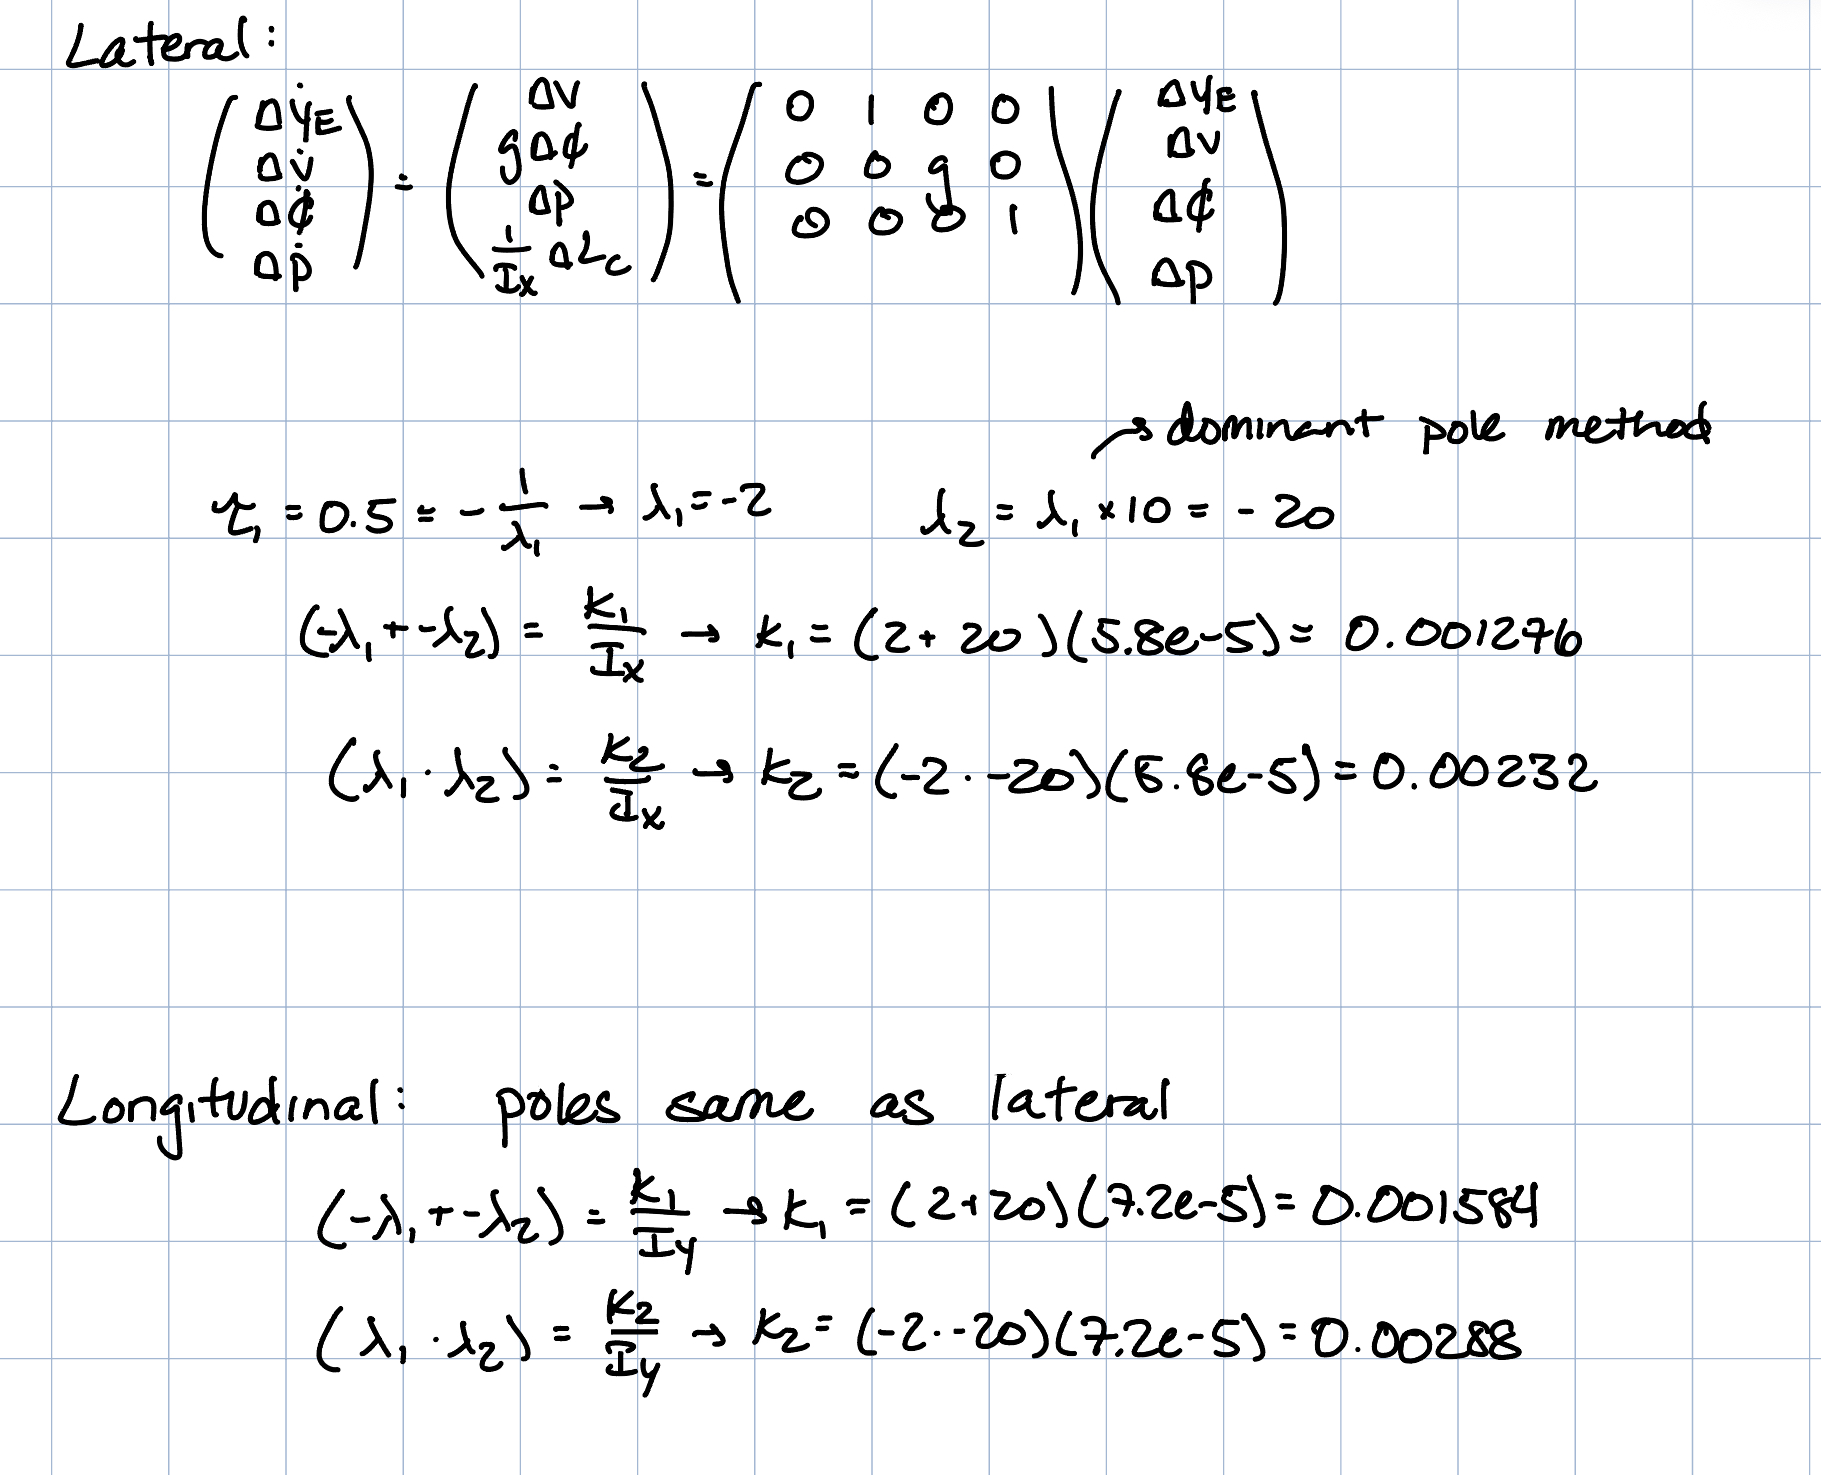 Lateral:
(Δẏ_E Δv̇ Δϕ̇ Δṗ) = (Δv gΔϕ Δp 1/I_x ΔL_c) = (0 1 0 0 / 0 0 g 0 / 0 0 0 1) (Δy_E Δv Δϕ Δp)
→ dominant pole method
τ₁ = 0.5 = -1/λ₁ → λ₁ = -2 λ₂ = λ₁ × 10 = -20
(-λ₁ + -λ₂) = K₁/I_x → K₁ = (2 + 20)(5.8e-5) = 0.001276
(λ₁ · λ₂) = K₂/I_x → K₂ = (-2 · -20)(5.8e-5) = 0.00232
Longitudinal: poles same as lateral
(-λ₁ + -λ₂) = K₁/I_y → K₁ = (2+20)(7.2e-5) = 0.001584
(λ₁ · λ₂) = K₂/I_y → K₂ = (-2 · -20)(7.2e-5) = 0.00288